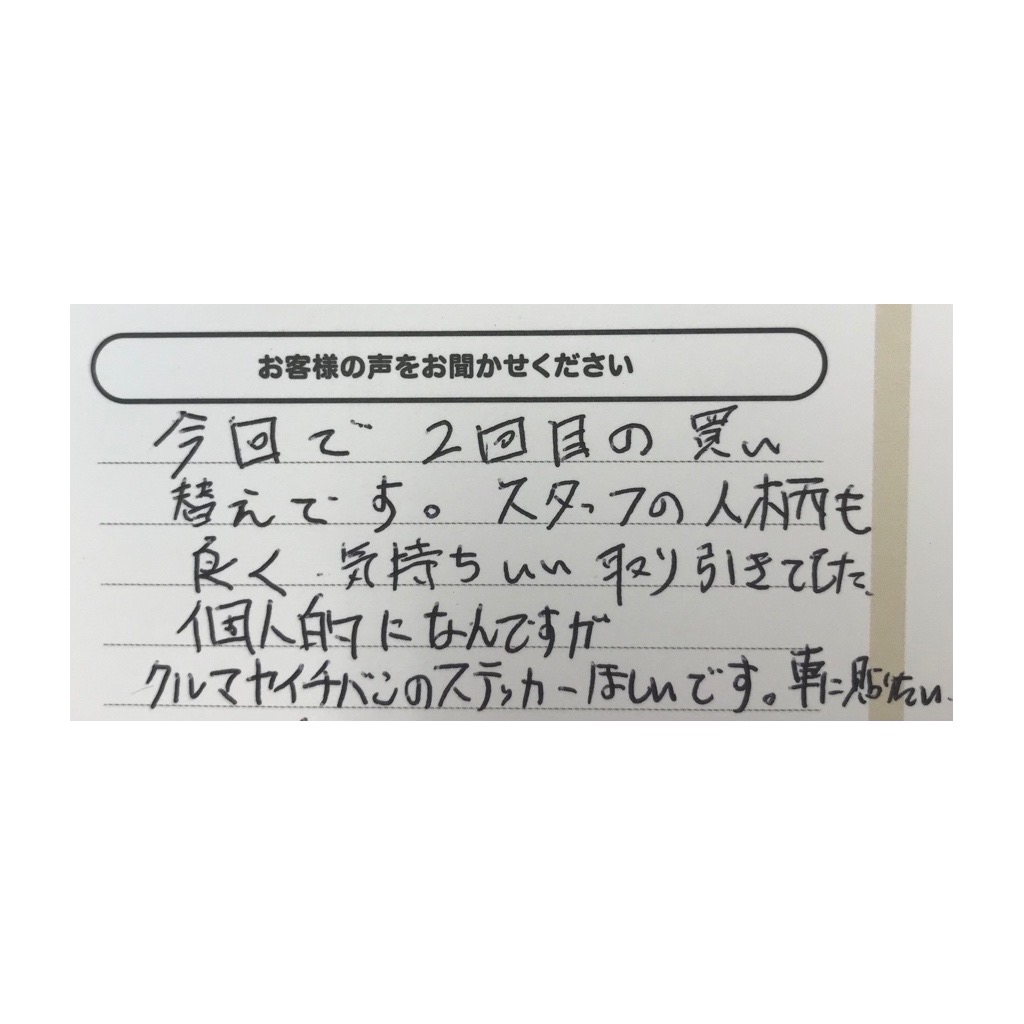 お客様の声をお聞かせください
今回で2回目の買い
替えです。スタッフの人柄も
良く気持ちいい取り引きでした。
個人的になんですが
クルマヤイチバンのステッカーほしいです。車に貼りたい